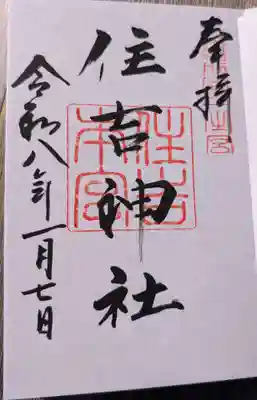 奉拝
住吉神社
令和八年一月七日
住吉
本宮